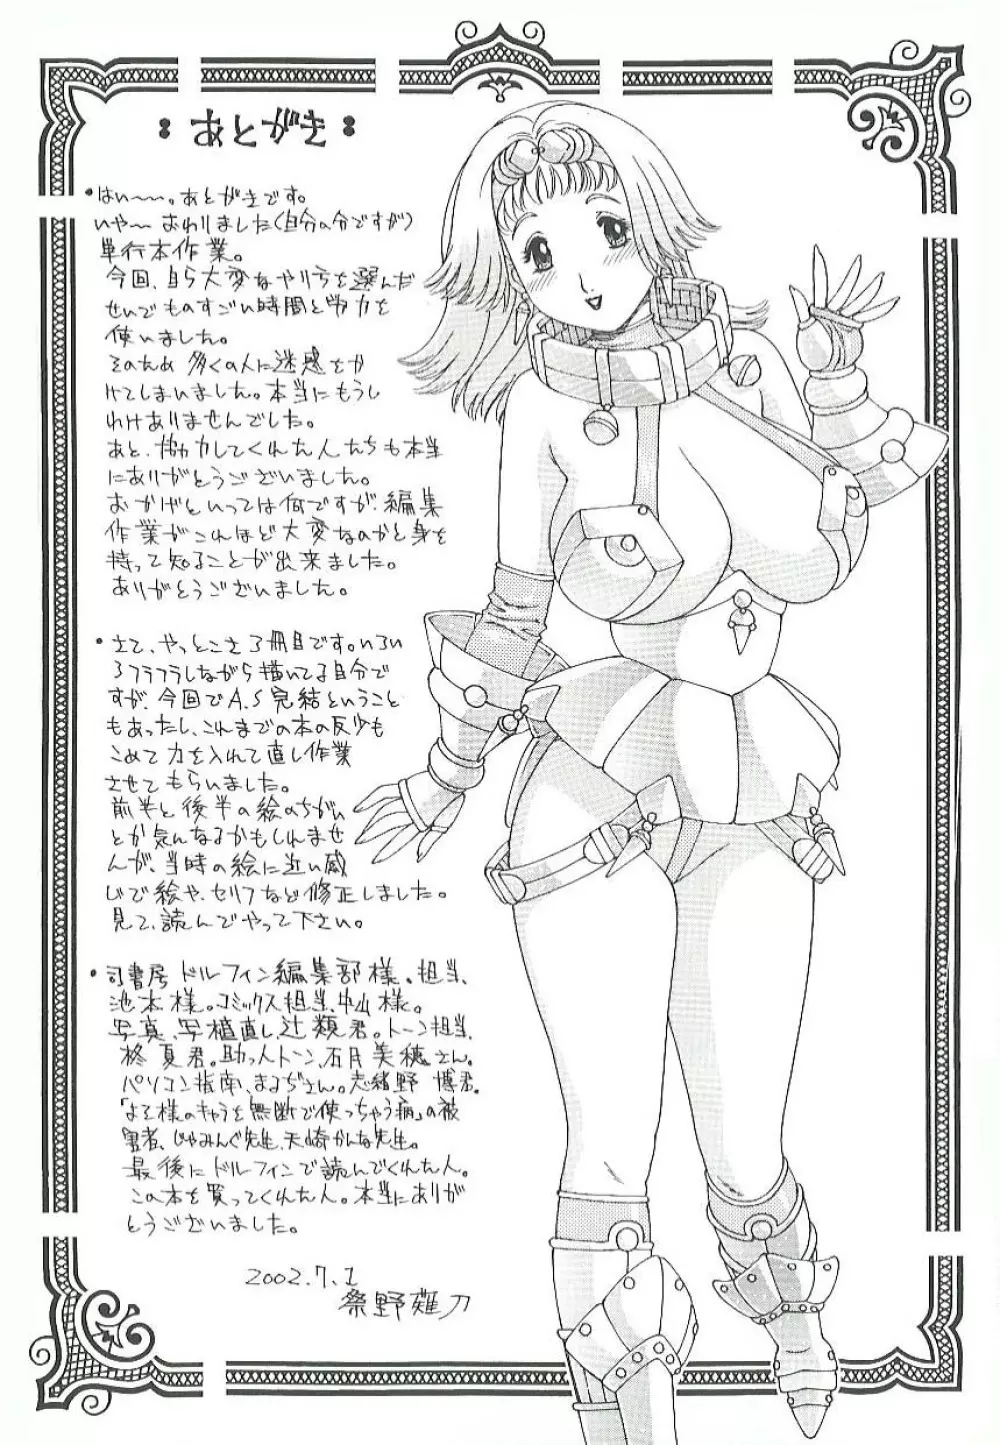 ：あとがき：
・はい〜〜。あとがきです。
いや〜おわりました(自分の分ですが)
単行本作業。
今回、自ら大変なやり方を選んだ
せいでものすごい時間と労力を
使いました。
そのため多くの人に迷惑をか
けてしまいました。本当にもうし
わけありませんでした。
あと、協力してくれた人たちも本当
にありがとうございました。
おかげといっては何ですが、編集
作業がこれほど大変なのかと身を
持って知ることが出来ました。
ありがとうございました。
・さて、やっとこさ3冊目です。いろい
ろフラフラしながら描いてる自分で
すが、今回でA.S完結ということ
もあったし、これまでの本の反省も
こめて力を入れて直し作業
させてもらいました。
前半と後半の絵のちがい
とか気になるかもしれませ
んが、当時の絵に近い感
じで絵や、セリフなど修正しました。
見て、読んでやって下さい。
・司書房 ドルフィン編集部様。担当、
池本様。コミックス担当、中山様。
写真、写植直し、辻 類君。トーン担当、
柊 夏君。助っ人トーン、石月美穂さん。
パソコン指南、まるぢさん。志緒野 博君。
「よそ様のキャラを無断で使っちゃう病」の被
害者、じゃみんぐ先生、天崎かんな先生。
最後にドルフィンで読んでくれた人。
この本を買ってくれた人。本当にありが
とうございました。
2002.7.1
祭野薙刀